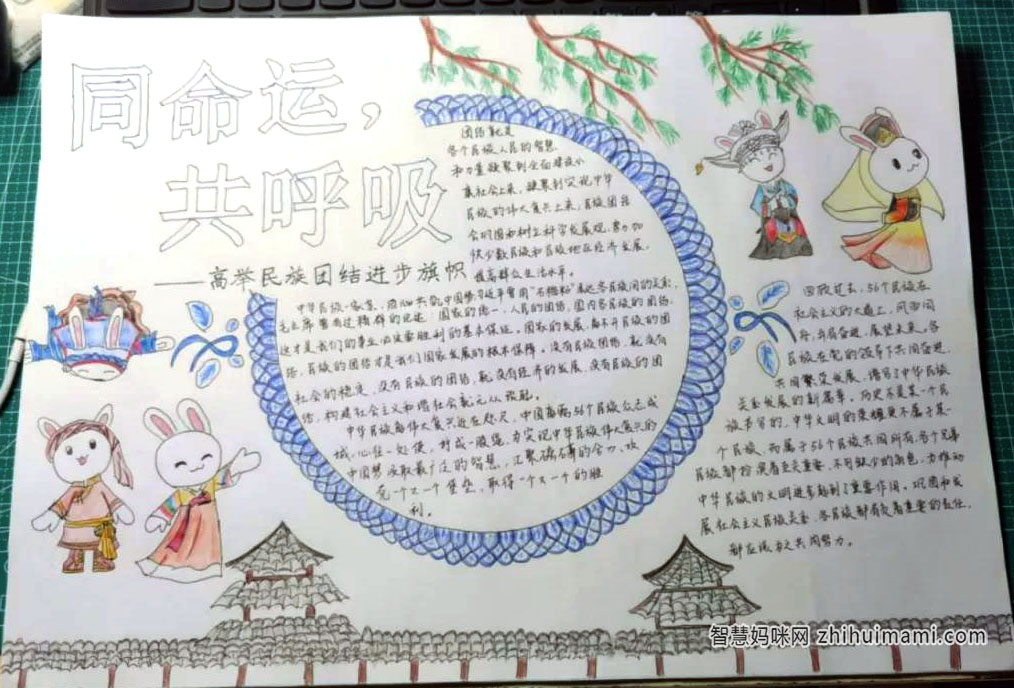 同命运，
共呼吸
——高举民族团结进步旗帜
团结就是
各个民族人民的智慧
和力量凝聚到全面建设小
康社会上来，凝聚到实现中华
民族的伟大复兴上来，民族团结
会巩固和树立科学发展观，努力加
快少数民族和民族地区经济发展，
提高群众生活水平。
中华民族一家亲，同心共筑中国梦，习近平曾用“石榴籽”表达各民族间的关系，
毛主席曾有过精辟的论述：国家的统一，人民的团结，国内各民族的团结，
这才是我们的事业必定要胜利的基本保证。国家的发展，离不开民族的团
结，民族的团结才是我们国家发展的根本保障。没有民族团结，就没有
社会的稳定，没有民族的团结，就没有经济的发展，没有民族的团
结，构建社会主义和谐社会就无从谈起。
中华民族离伟大复兴近在咫尺，中国离不56个民族众志成
城，心往一处使，拧成一股绳，为实现中华民族伟大复兴的
中国梦汲取最广泛的智慧，汇聚磅礴的合力，攻
克一个又一个堡垒，取得一个又一个的胜
利。
回顾过去，56个民族在
社会主义的大道上，风雨同
舟，并肩奋进，展望未来，各
民族在党的领导下共同奋进，
共同繁荣发展，谱写了中华民族
关系发展的新篇章。历史不是某一个民
族书写的，中华文明的荣耀更不属于某一
个民族，而属于56个民族共同所有，各个兄弟
民族都扮演着至关重要、不可缺少的角色，为推动
中华民族的文明进步起到了重要作用。巩固和发
展社会主义民族关系，各民族都有着重要的责任，
都应该为之共同努力。
智慧妈咪网 zhihuimami.com